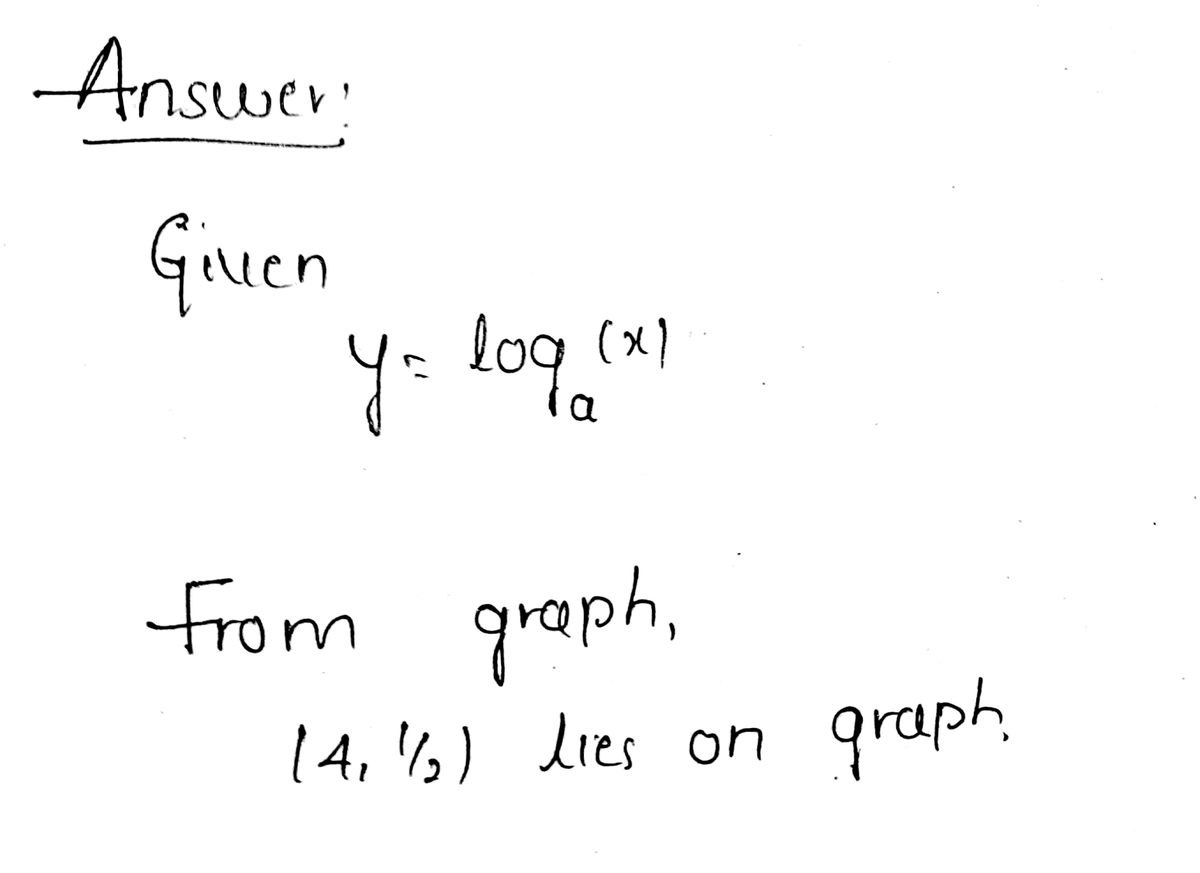 Answer:
Given
y = logₐ(x)
From graph,
(4, 1/2) lies on graph.